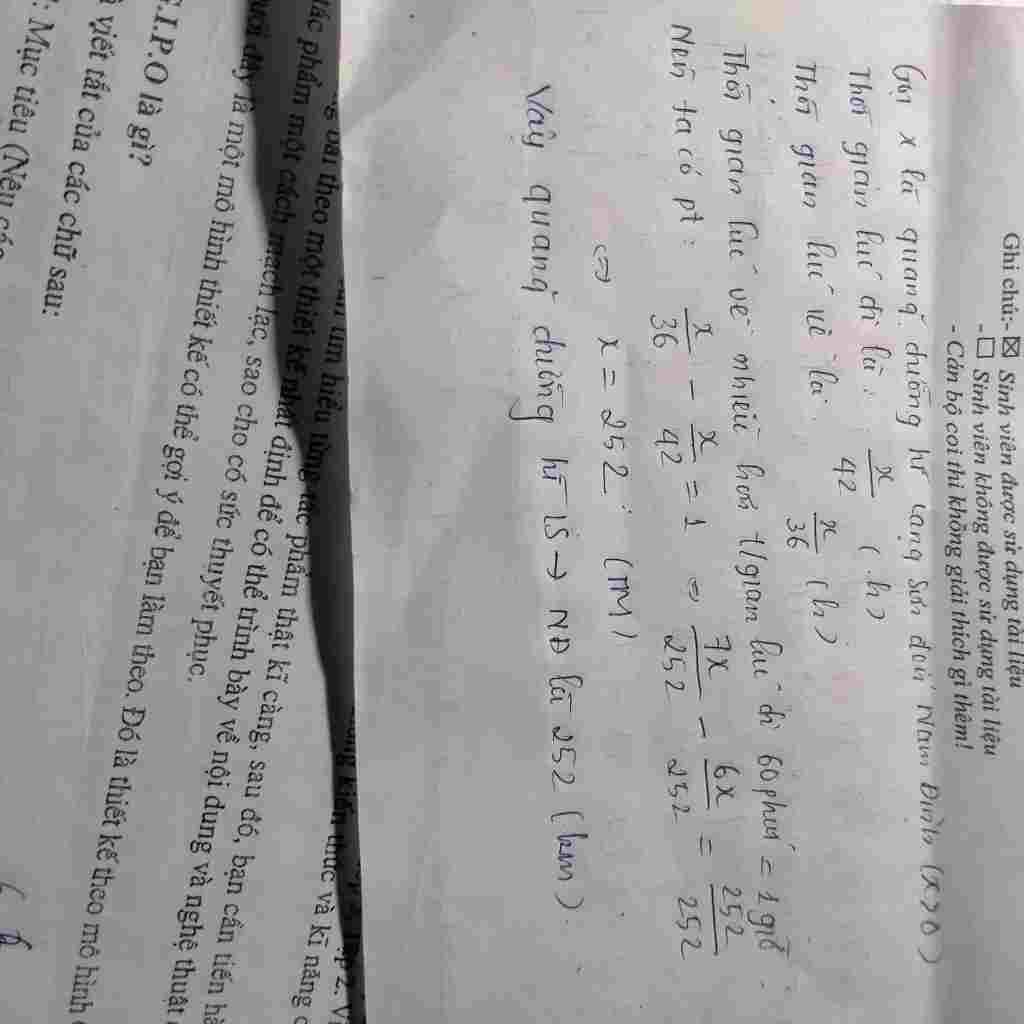 Ghi chú:- ☒ Sinh viên được sử dụng tài liệu
- ☐ Sinh viên không được sử dụng tài liệu
- Cán bộ coi thi không giải thích gì thêm!
Gọi x là quãng đường từ Lạng Sơn đến Nam Định (x>0)
Thời gian lúc đi là: x/42 (h)
Thời gian lúc về là: x/36 (h)
Thời gian lúc về nhiều hơn t/gian lúc đi 60 phút = 1 giờ.
Nên ta có pt: x/36 - x/42 = 1 ⇔ 7x/252 - 6x/252 = 252/252
⇔ x = 252 (TM)
Vậy quãng đường từ LS → NĐ là 252 (km).
tìm hiểu từng tác phẩm thật kĩ càng, sau đó, bạn cần tiến
theo một thiết kế nhất định để có thể trình bày về nội dung và nghệ thuật
tác phẩm một cách mạch lạc, sao cho có sức thuyết phục.
đây là một mô hình thiết kế có thể gợi ý để bạn làm theo. Đó là thiết kế theo mô hình
.I.P.O là gì?
viết tắt của các chữ sau:
Mục tiêu (Nêu